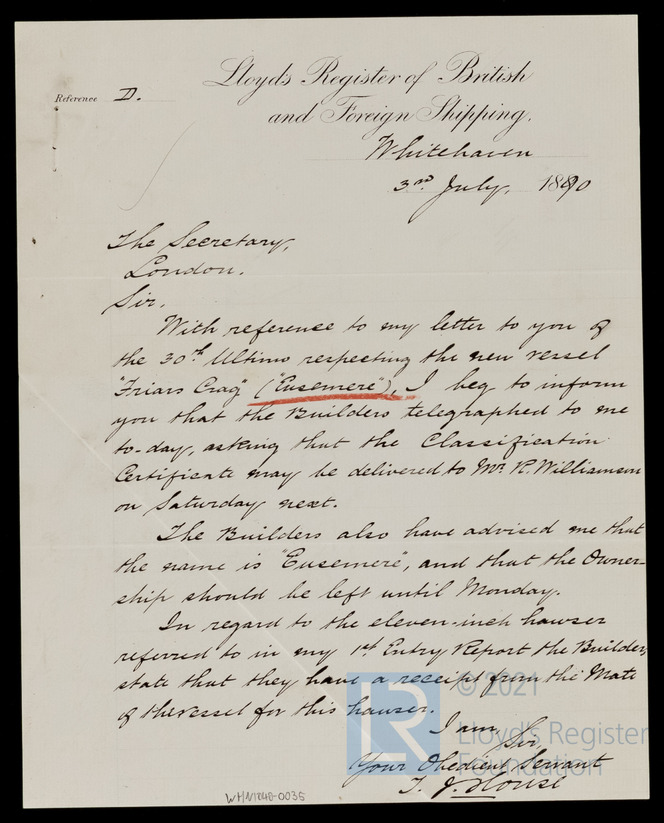 Lloyd's Register of British
and Foreign Shipping.
Reference D.
Whitehaven
3rd July, 1890
The Secretary,
London.
Sir.
With reference to my letter to you of
the 30th Ultimo respecting the new vessel
"Friars Crag" ("Eusemere"), I beg to inform
you that the Builders telegraphed to me
to-day, asking that the Classification
Certificate may be delivered to Mr. R. Williamson
on Saturday next.
The Builders also have advised me that
the name is "Eusemere", and that the Owner-
ship should be left until Monday.
In regard to the eleven-inch hawser
referred to in my 1st Entry Report the Builders
state that they have a receipt from the Mate
of the vessel for this hawser.
I am,
Sir,
Your Obedient Servant
T. J. House
WHN1240-0035
© 2021
Lloyd's Register
Foundation
LR